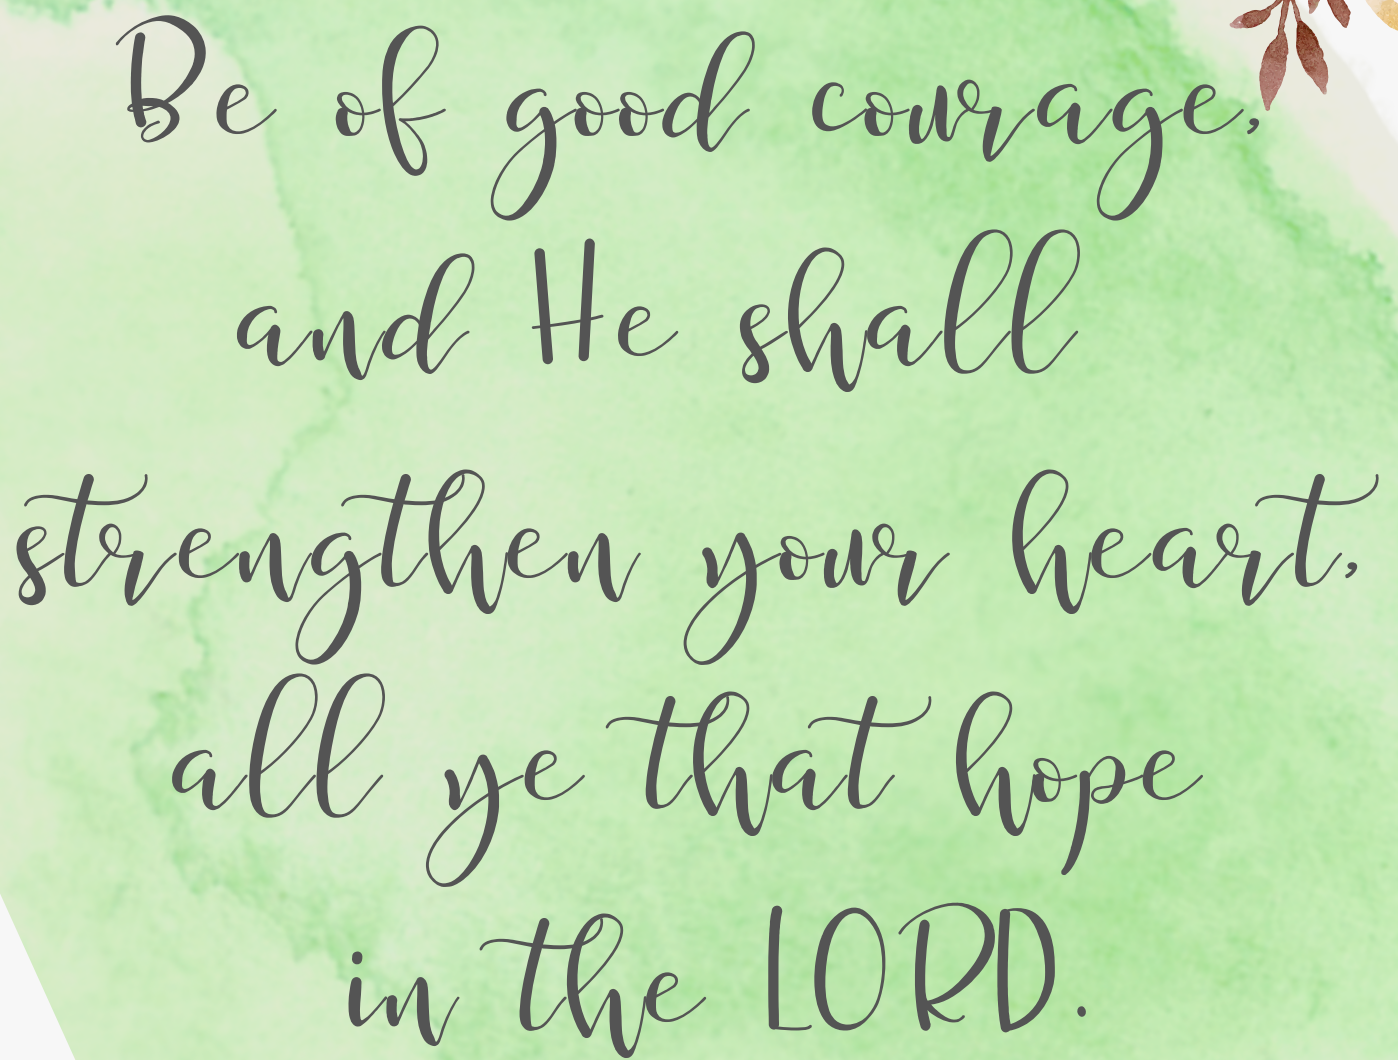 Be of good courage,
and He shall
strengthen your heart,
all ye that hope
in the LORD.